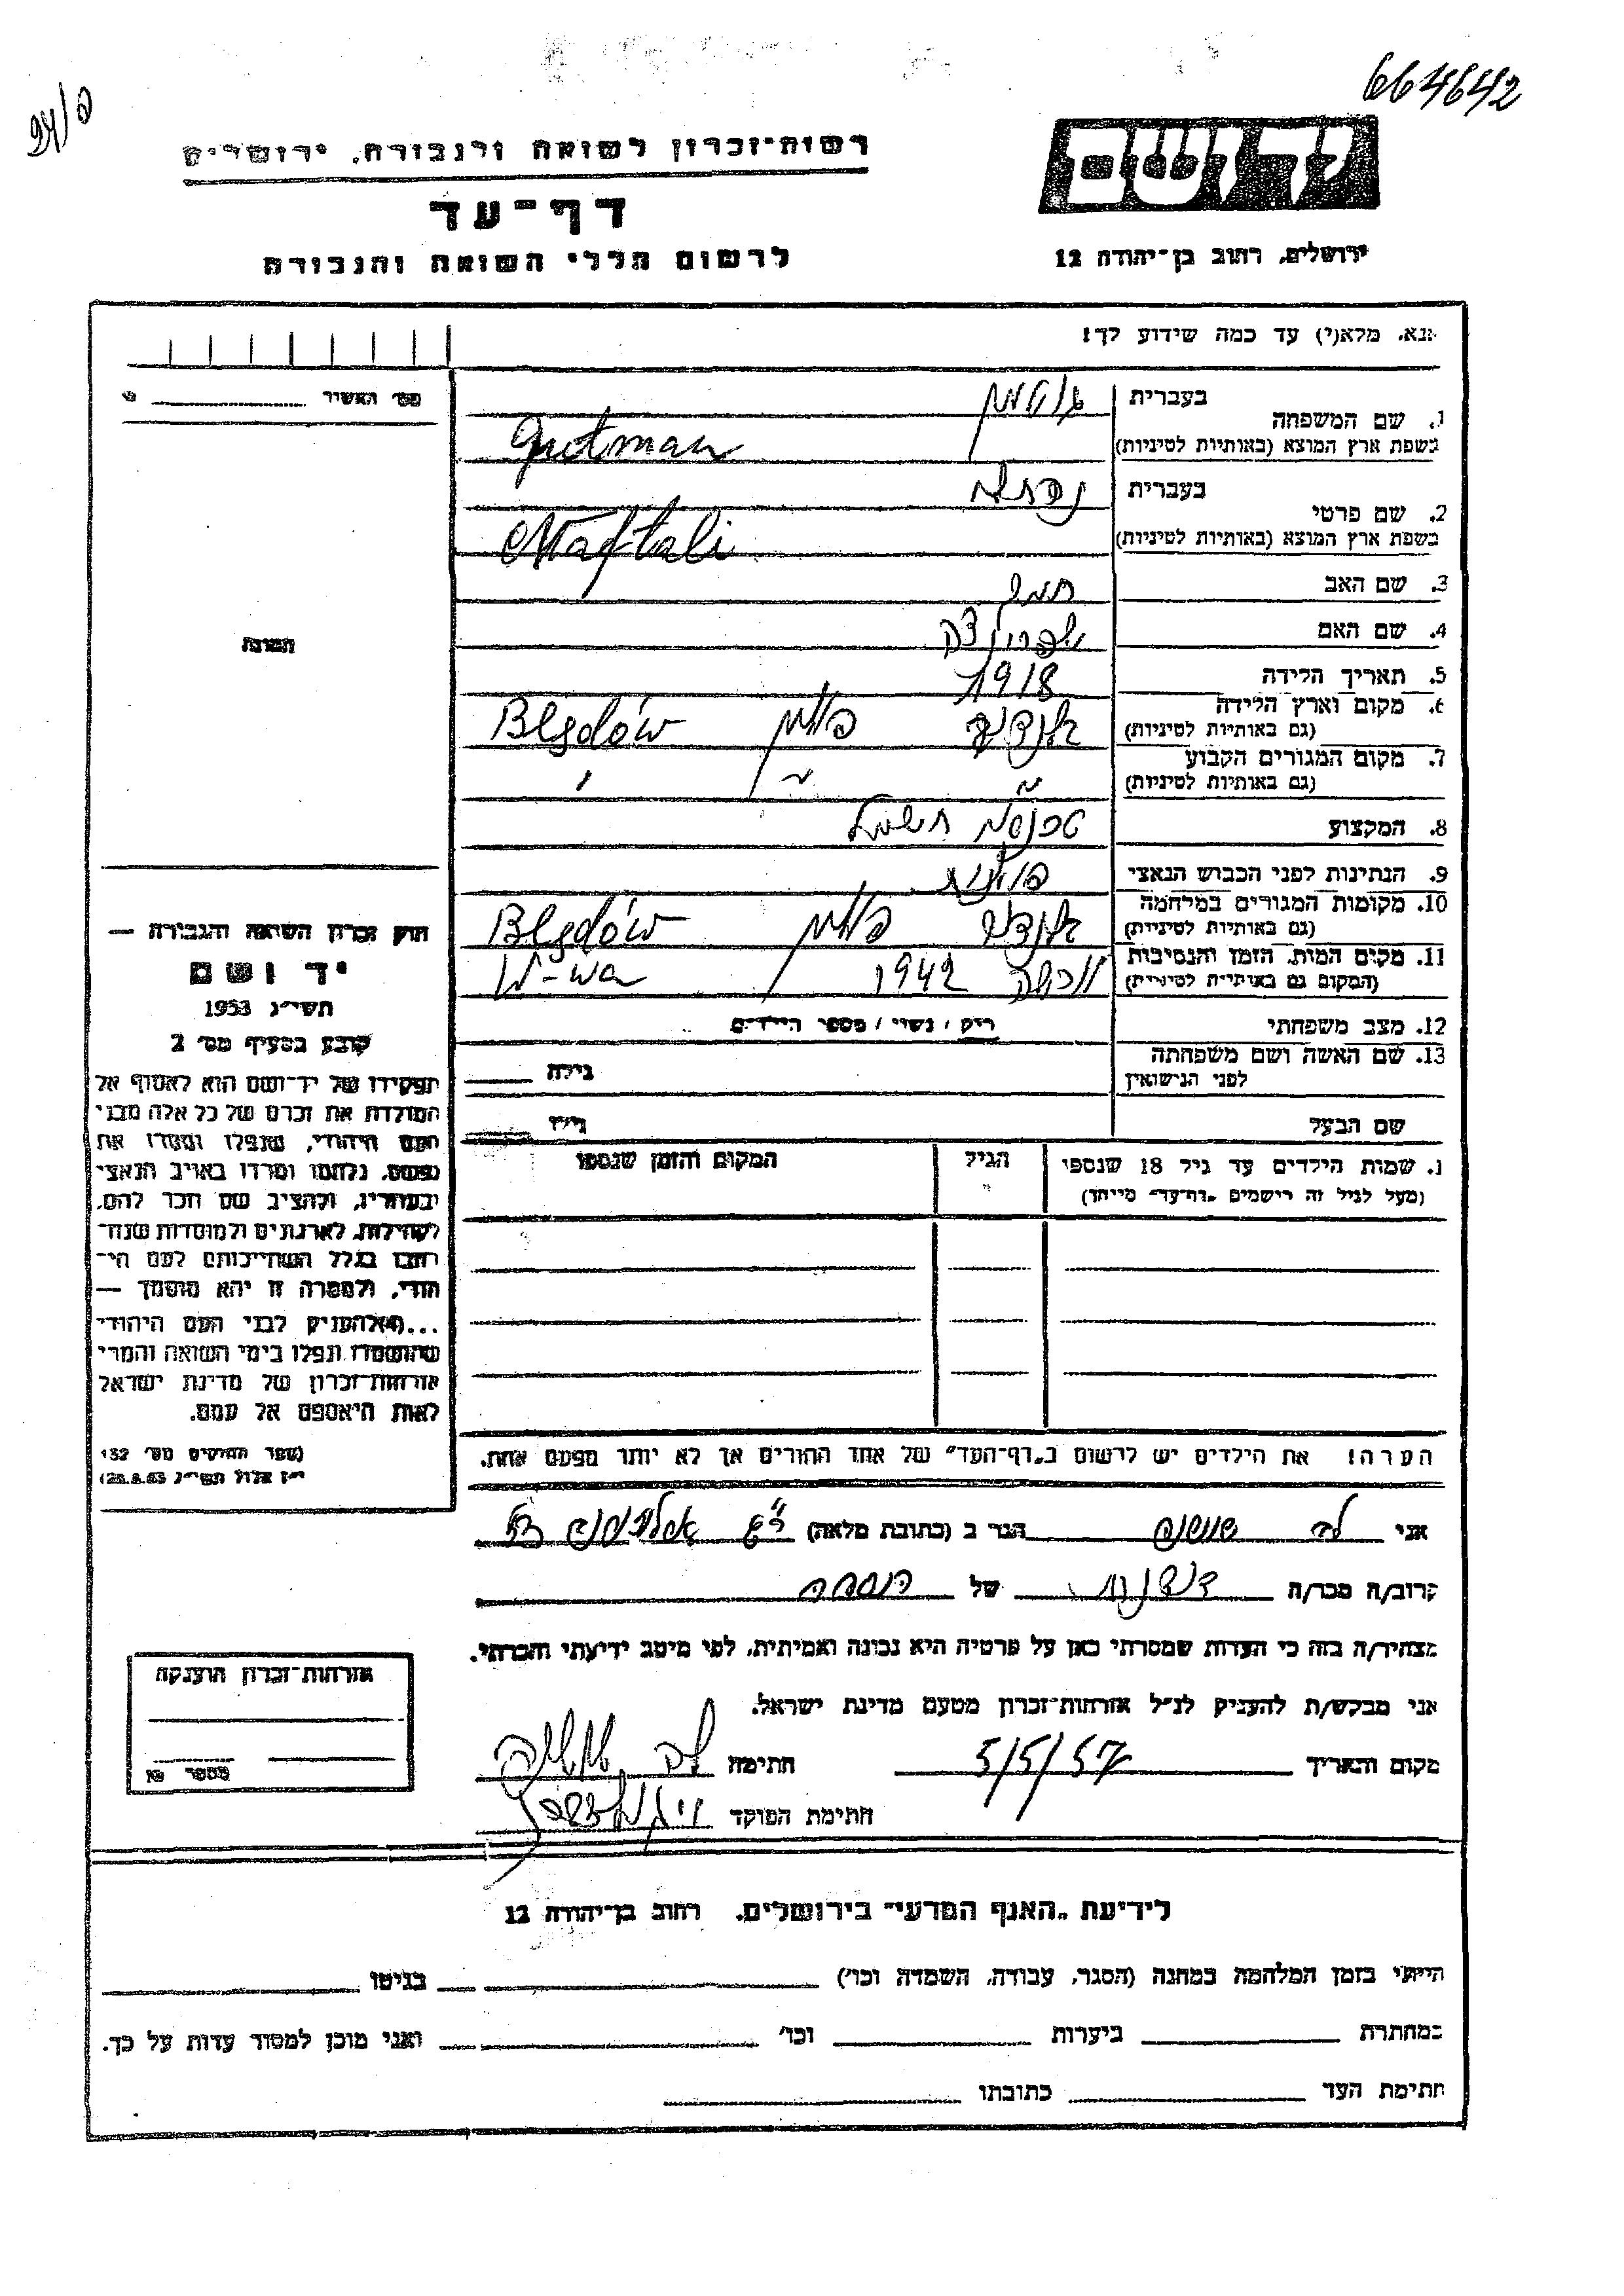 664642
רשות-זכרון לשואה ולגבורה, ירושלים
דף-עד
לרשום חללי השואה והגבורה
ירושלים, רחוב בן-יהודה 12
נא, מלא(י) עד כמה שידוע לך!
מס' האשיד
1. שם המשפחה
בעברית גוטמן
בשפת ארץ המוצא (באותיות לטיניות) Gutman
2. שם פרטי
בעברית נפתלי
בשפת ארץ המוצא (באותיות לטיניות) Naftali
3. שם האב
4. שם האם
5. תאריך הלידה 1918
6. מקום וארץ הלידה
(גם באותיות לטיניות) פולין Blędów
7. מקום המגורים הקבוע
(גם באותיות לטיניות) " " "
8. המקצוע חשמל
9. הנתינות לפני הכבוש הנאצי פולנית
10. מקומות המגורים במלחמה
(גם באותיות לטיניות) פולין Blędów
11. מקום המות, הזמן והנסיבות
(המקום גם באותיות לטיניות) ורשה 1942 W-wa
12. מצב משפחתי רווק / נשוי / מספר הילדים
13. שם האשה ושם משפחתה
לפני הנישואין
גילה
שם הבעל גילו
שמות הילדים עד גיל 18 שנספו
(מעל לגיל זה רישמים "דף-עד" מיוחד)
הגיל
המקום והזמן שנספו
הערה! את הילדים יש לרשום ב"דף-העד" של אחד ההורים אך לא יותר מפעם אחת.
התמונה
חוק זכרון השואה והגבורה —
יד ושם
תשי"ג 1953
קובע בסעיף מס' 2
תפקידו של יד-ושם הוא לאסוף אל
המולדת את זכרם של כל אלה מבני
העם היהודי, שנפלו ומסרו את
נפשם, נלחמו ומרדו באויב הנאצי
ובעוזריו, ולהציב שם וזכר להם,
לקהילות, לארגונים ולמוסדות שנח-
רבו בגלל השתייכותם לעם הי-
הודי, ולמטרה זו יהא מוסמך —
...(4) להעניק לבני העם היהודי
שהושמדו ונפלו בימי השואה והמרי
אזרחות-זכרון של מדינת ישראל
לאות היאספם אל עמם.
(ספר החוקים מס' 132
י"ז אלול תשי"ג 28.8.53)
אני הגר ב (כתובת מלאה)
קרוב/ה מכר/ה של
מצהיר/ה בזה כי העדות שמסרתי כאן על פרטיה היא נכונה ואמיתית, לפי מיטב ידיעתי והכרתי.
אני מבקש/ת להעניק לנ"ל אזרחות-זכרון מטעם מדינת ישראל.
מקום ותאריך 5/5/57 חתימה
חתימת הפוקד
אזרחות-זכרון הוענקה
מספר
לידיעת "האגף המדעי" בירושלים, רחוב בן-יהודה 12
הייתי בזמן המלחמה במחנה (הסגר, עבודה, השמדה וכו') בגיטו
במחתרת ביערות וכו' ואני מוכן למסור עדות על כך.
חתימת העד כתובתו